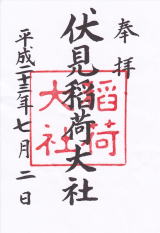 奉拝
伏見稲荷大社
平成二十三年七月二日
稲荷
大社